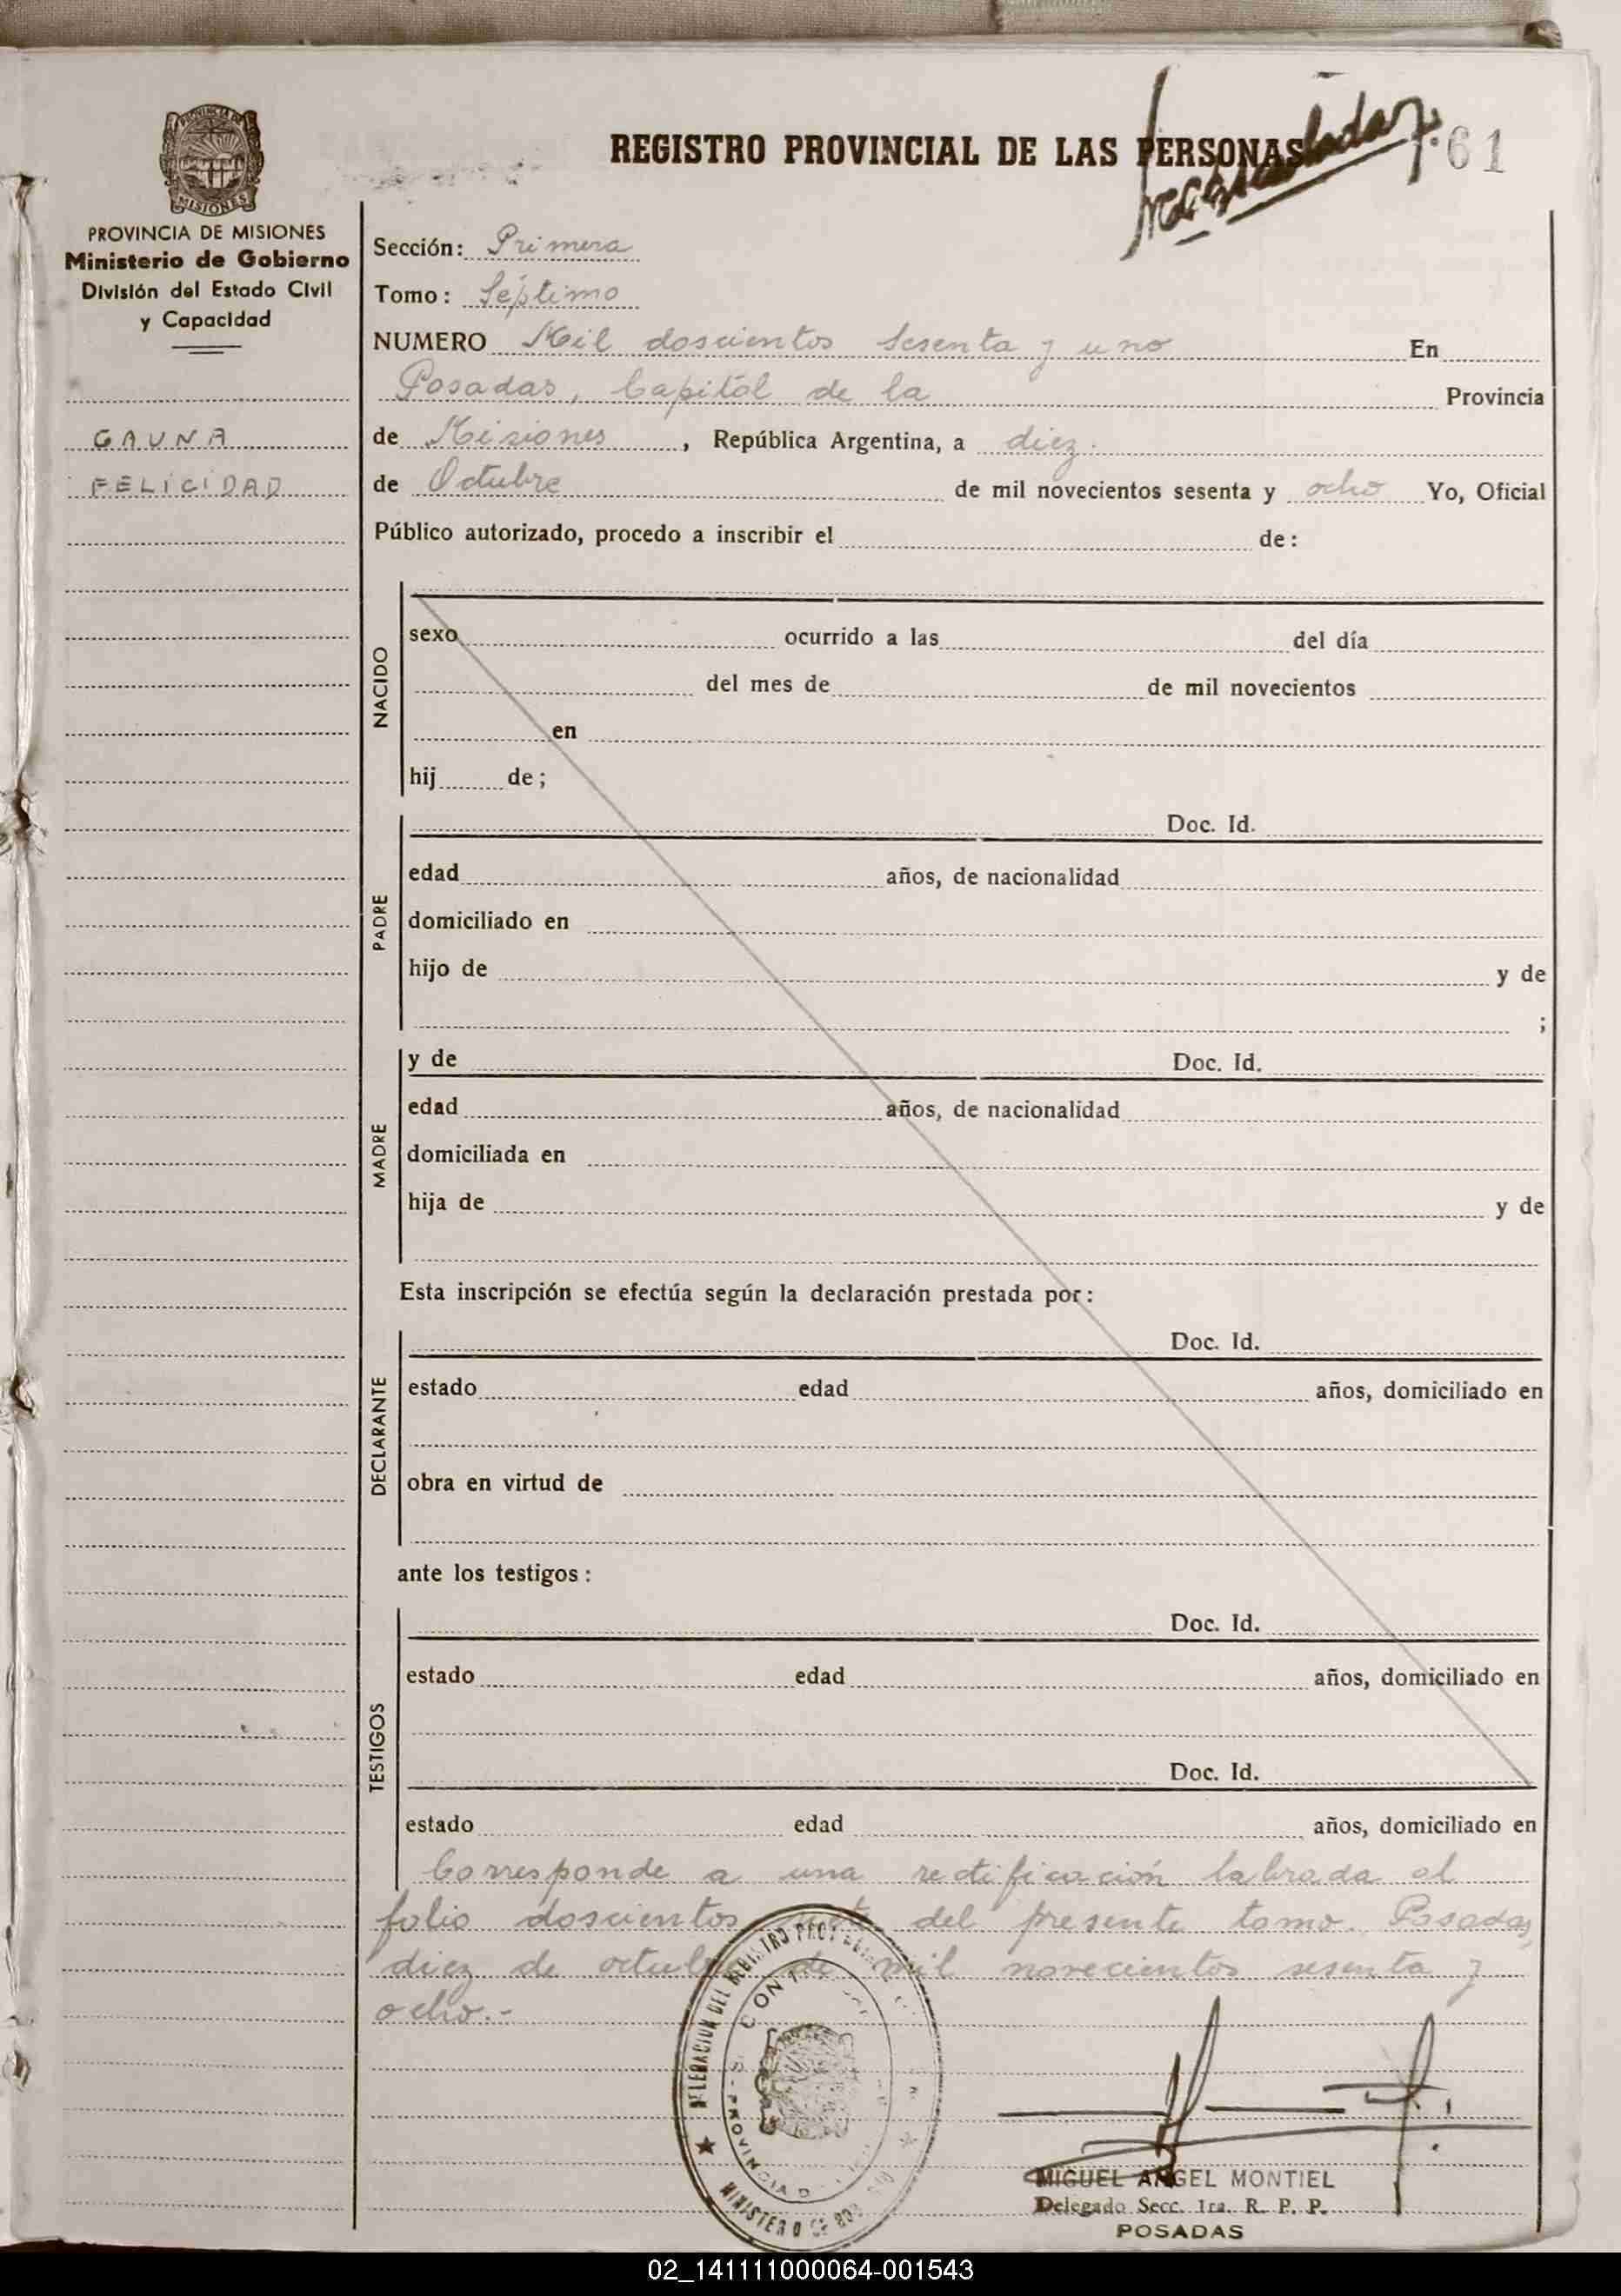 REGISTRO PROVINCIAL DE LAS PERSONAS
61
PROVINCIA DE MISIONES
MISIONES
PROVINCIA DE MISIONES
Ministerio de Gobierno
División del Estado Civil
y Capacidad
GAUNA
FELICIDAD
Sección: Primera
Tomo: Séptimo
NUMERO Mil doscientos sesenta y uno En
Posadas, Capital de la Provincia
de Misiones, República Argentina, a diez
de Octubre de mil novecientos sesenta y ocho Yo, Oficial
Público autorizado, procedo a inscribir el de:
NACIDO
sexo ocurrido a las del día
del mes de de mil novecientos
en
hij de;
PADRE
Doc. Id.
edad años, de nacionalidad
domiciliado en
hijo de y de
;
MADRE
y de Doc. Id.
edad años, de nacionalidad
domiciliada en
hija de y de
Esta inscripción se efectúa según la declaración prestada por:
DECLARANTE
Doc. Id.
estado edad años, domiciliado en
obra en virtud de
ante los testigos:
TESTIGOS
Doc. Id.
estado edad años, domiciliado en
Doc. Id.
estado edad años, domiciliado en
Corresponde a una rectificación labrada al
folio doscientos del presente tomo. Posadas,
diez de octubre de mil novecientos sesenta y
ocho.-
DELEGACION DEL REGISTRO
MINISTERIO DE
MIGUEL ANGEL MONTIEL
Delegado Secc. 1ra. R. P. P.
POSADAS
02_141111000064-001543